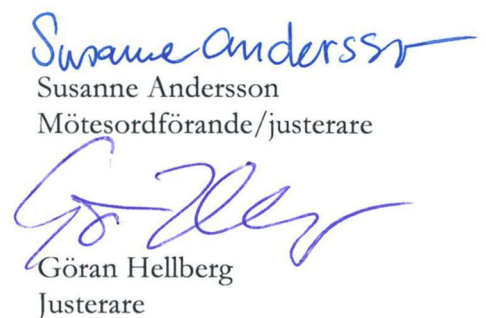 Susanne Andersson
Susanne Andersson
Mötesordförande/justerare
Göran Hellberg
Justerare